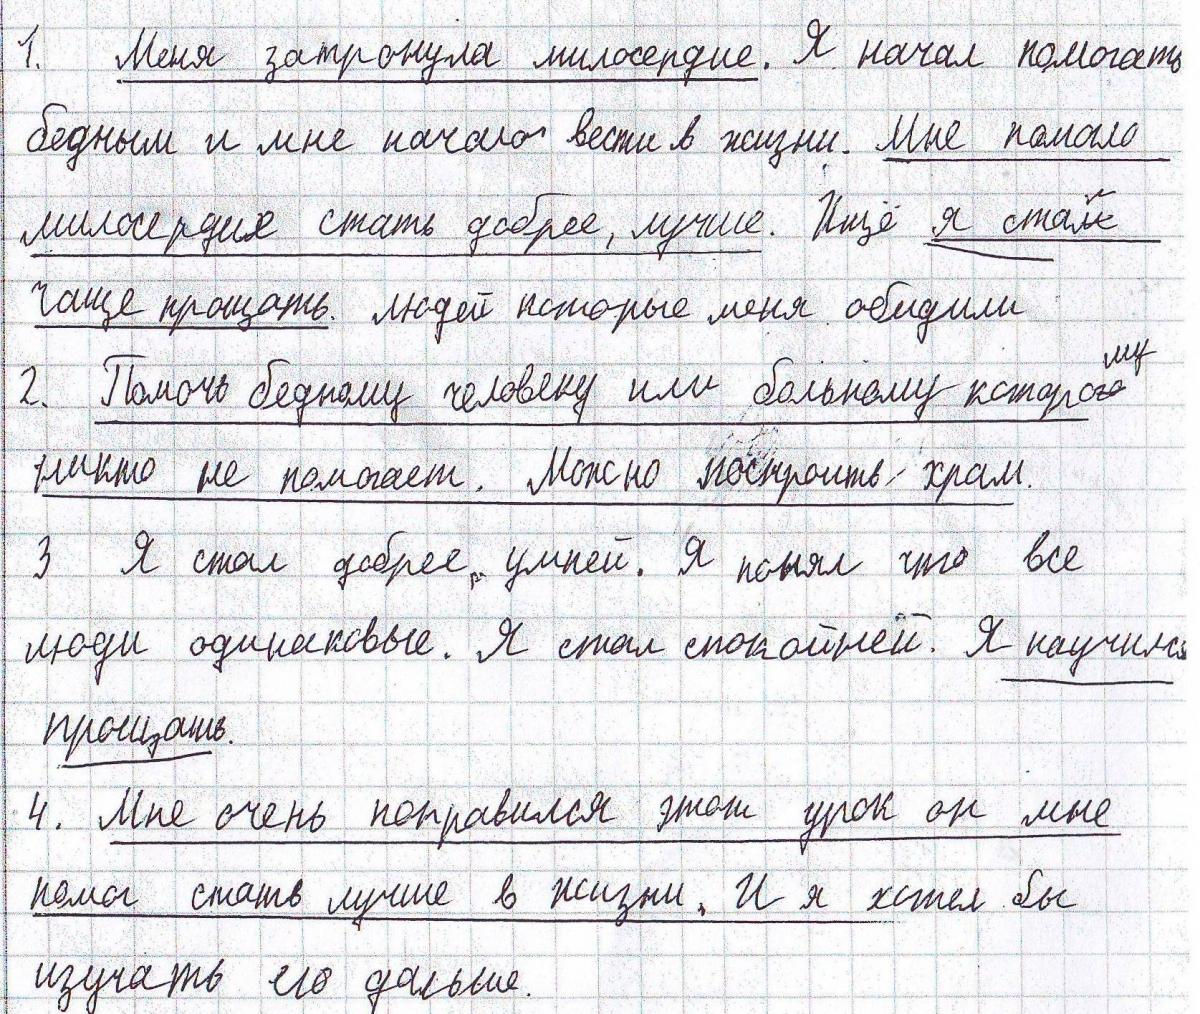 1. Меня затронула милосердие. Я начал помогать
бедным и мне начало вести в жизни. Мне помогло
милосердие стать добрее, лучше. Ищё я стал
чаще прощать. людей которые меня обидили
2. Помочь бедному человеку или больному которому
никто не помогает. Можно построить храм.
3 Я стал добрее, умней. Я понял что все
люди одинаковые. Я стал спокойней. Я научился
прощать.
4. Мне очень понравился этот урок он мне
помог стать лучше в жизни. И я хотел бы
изучать его дальше.